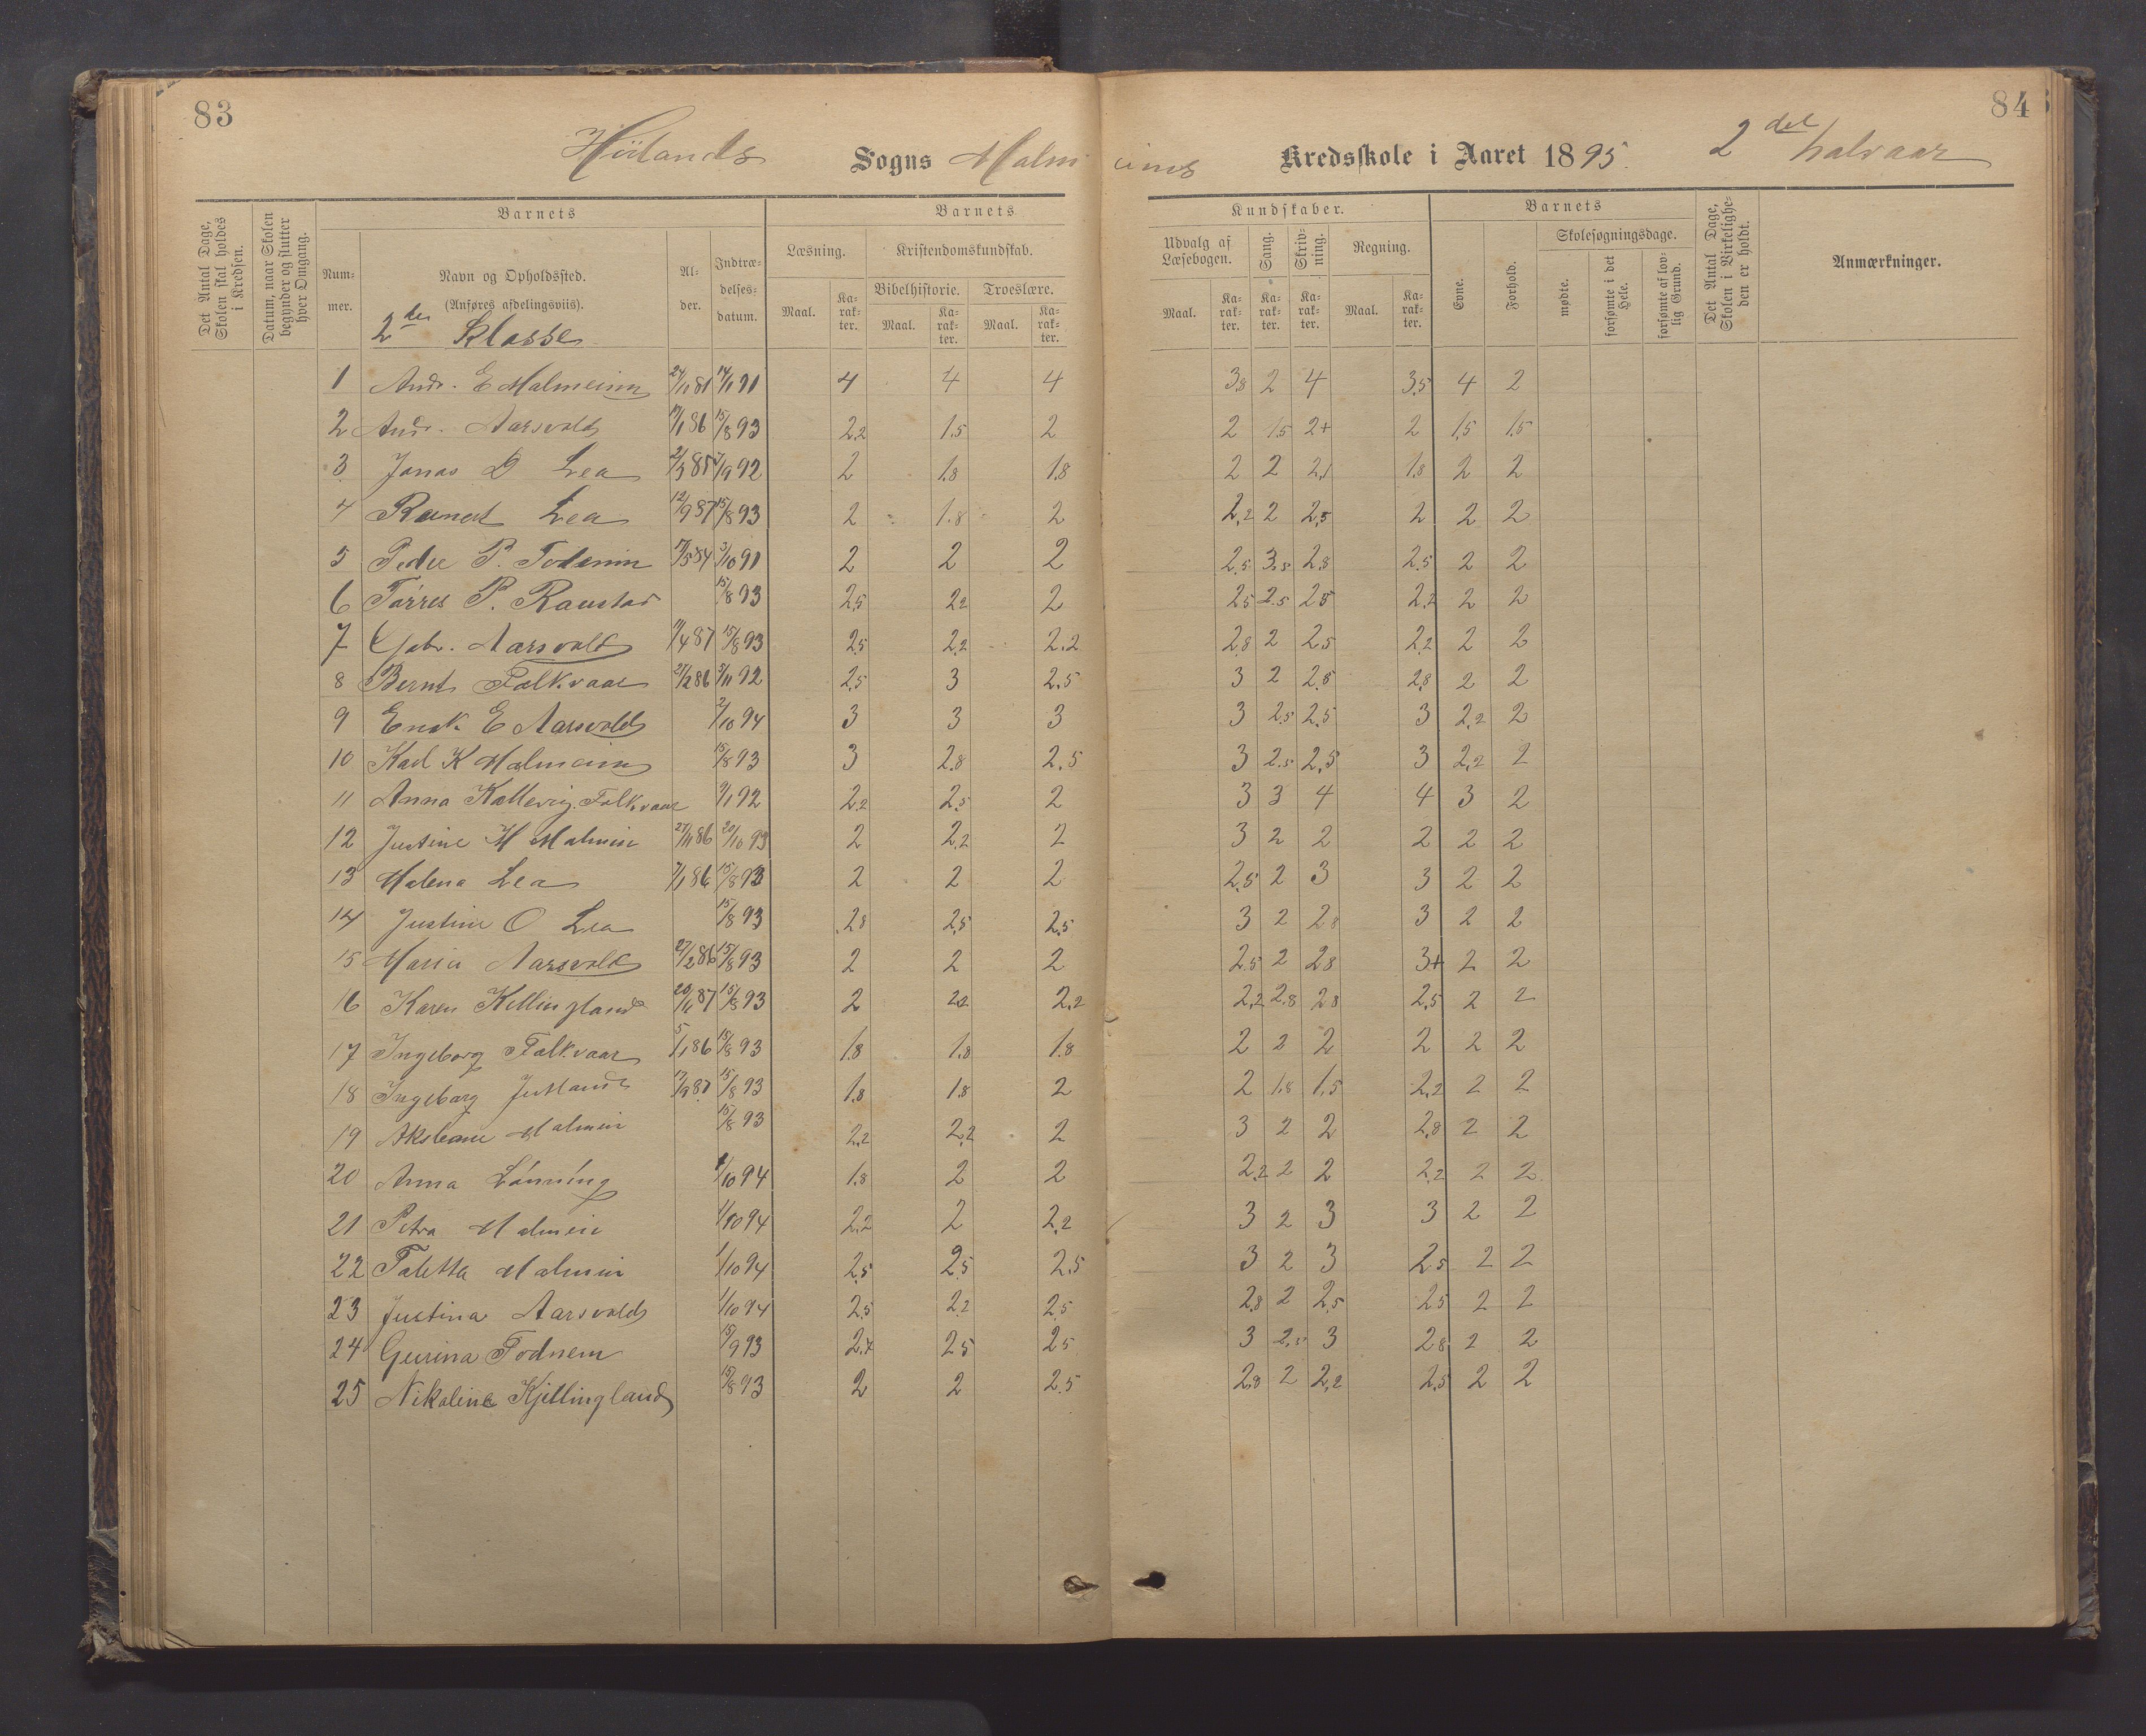 83
84
Höilands Sogns Malmeims Kredsskole i Aaret 1895. 2det halvaar
Det Antal Dage, Skolen skal holdes i Kredsen.
Datum, naar Skolen begynder og slutter hver Omgang.
Barnets
Barnets
Kundskaber.
Barnets
Det Antal Dage, Skolen i Virkeligheden er holdt.
Anmærkninger.
Nummer.
Navn og Opholdssted.
(Anføres afdelingsviis).
Alder.
Indtrædelsesdatum.
Læsning.
Kristendomskundskab.
Bibelhistorie.
Troeslære.
Udvalg af Læsebogen.
Sang.
Skrivning.
Regning.
Evne.
Forhold.
Skolesøgningsdage.
mødte.
forsømte i det Hele.
forsømte af lovlig Grund.
Maal. Karakter. Maal. Karakter. Maal. Karakter. Maal. Karakter. Karakter. Karakter. Maal. Karakter.
2den Klasse
1 Andr. E Malmeim 24/11 81 14/1 91 4 4 4 3,8 2 4 3,5 4 2
2 Andr. Aarsvold 17/1 86 15/8 93 2,2 1.5 2 2 1.5 2+ 2 1,5 1.5
3 Jonas D Lea 92 2 1.8 1.8 2 2 2,1 1.8 2 2
4 Lea 12/9 87 15/8 93 2 1.8 2 2,2 2 2,5 2 2 2
5 Peder P. 3/10 91 2 2 2 2,5 3,8 2,8 2,5 2 2
6 Tørres P. Raustad 15/8 93 2,5 2,2 2 2,5 2.5 2,5 2,2 2 2
7 Gabr. Aarsvold 15/8 93 2,5 2,2 2.2 2,8 2 2,5 2,2 2 2
8 Bernt Folkvaar 92 2,5 3 2.5 3 2 2,8 2,8 2 2
9 E Aarsvold 94 3 3 3 3 2.5 2,5 3 2,2 2
10 Karl K Malmeim 15/8 93 3 2.8 2.5 3 2.5 2,5 3 2,2 2
11 Anna Kallevig. Folkvaar 9/1 92 2,2 2,5 2 3 3 4 4 3 2
12 Justine M Malmin 27/11 86 20/10 93 2 2,2 2 3 2 2 2 2 2
13 Malena Lea 15/8 93 2 2 2 2,5 2 3 3 2 2
14 Justine O Lea 15/8 93 2,8 2,5 2,5 3 2 2,8 3 2 2
15 Maria Aarsvold 27/2 86 15/8 93 2 2 2 2.5 2 2,8 3+ 2 2
16 Karen Killingland 20/11 87 15/8 93 2 2,2 2,2 2,8 2,8 2,5 2 2
17 Ingeborg Folkvaar 5/1 86 15/8 93 1.8 1.8 1.8 2 2 2 2 2 2
18 Ingeborg Jutland 15/8 93 1.8 1.8 2 2 1.8 1,5 2,2 2 2
19 Malmin 15/8 93 2,2 2,2 2 3 2 2 2,8 2 2
20 Anna Lönning 1/10 94 1.8 2 2 2,2 2 2 2,2 2 2
21 Petra Malmin 1/10 94 2,2 2 2,2 3 2 3 3 2 2
22 Taletta Malmin 1/10 94 2,5 2,5 2,5 3 2 3 2,5 2 2
23 Justina Aarsvold 1/10 94 2,5 2,2 2,5 2,8 2 2,5 2,5 2 2
24 Gurina Todnem 15/9 93 2,5 2,5 3 2,5 3 2,8 2 2
25 Nikoline Kjillingland 15/8 93 2 2 2.5 2,8 2 2,2 2,5 2 2